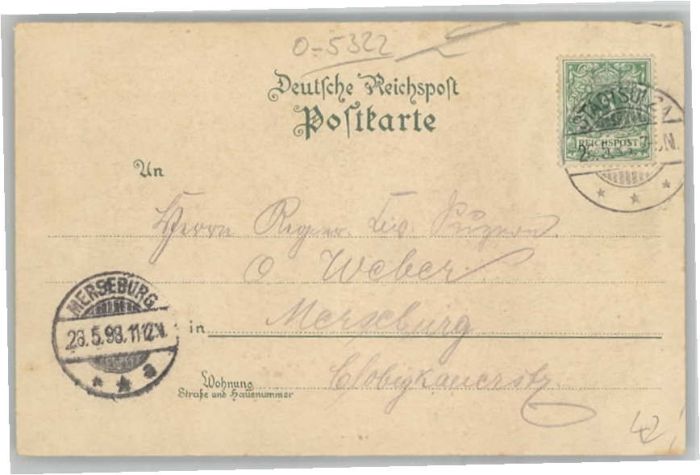 0-5322
Deutsche Reichspost
Postkarte
STADTSULZA
REICHSPOST
An
Herrn Regier.
O Weber
MERSEBURG
28.5.98.11-12V.
in Merseburg
a
Clobigkauerstr.
Wohnung
Straße und Hausnummer
42